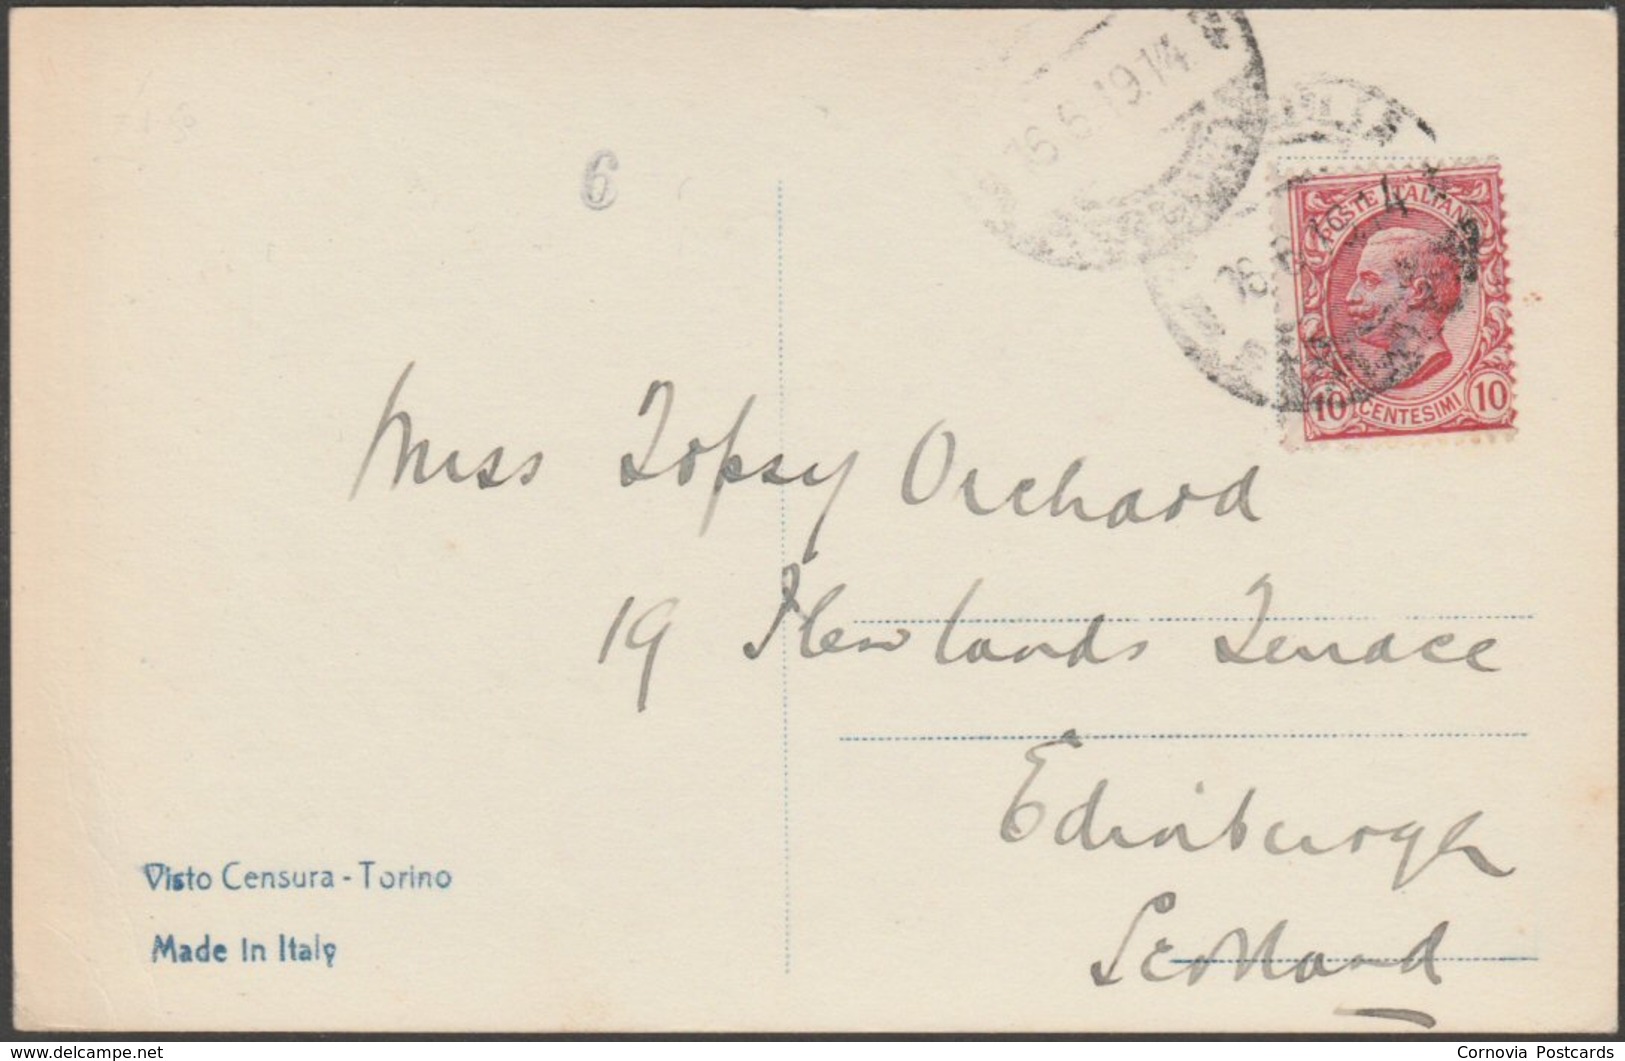 16.6.19.14
6
POSTE ITALIANE
10 CENTESIMI 10
Miss Topsy Orchard
19 Newlands Terrace
Edinburgh
Scotland
Visto Censura - Torino
Made in Italy
www.delcampe.net
Cornovia Postcards